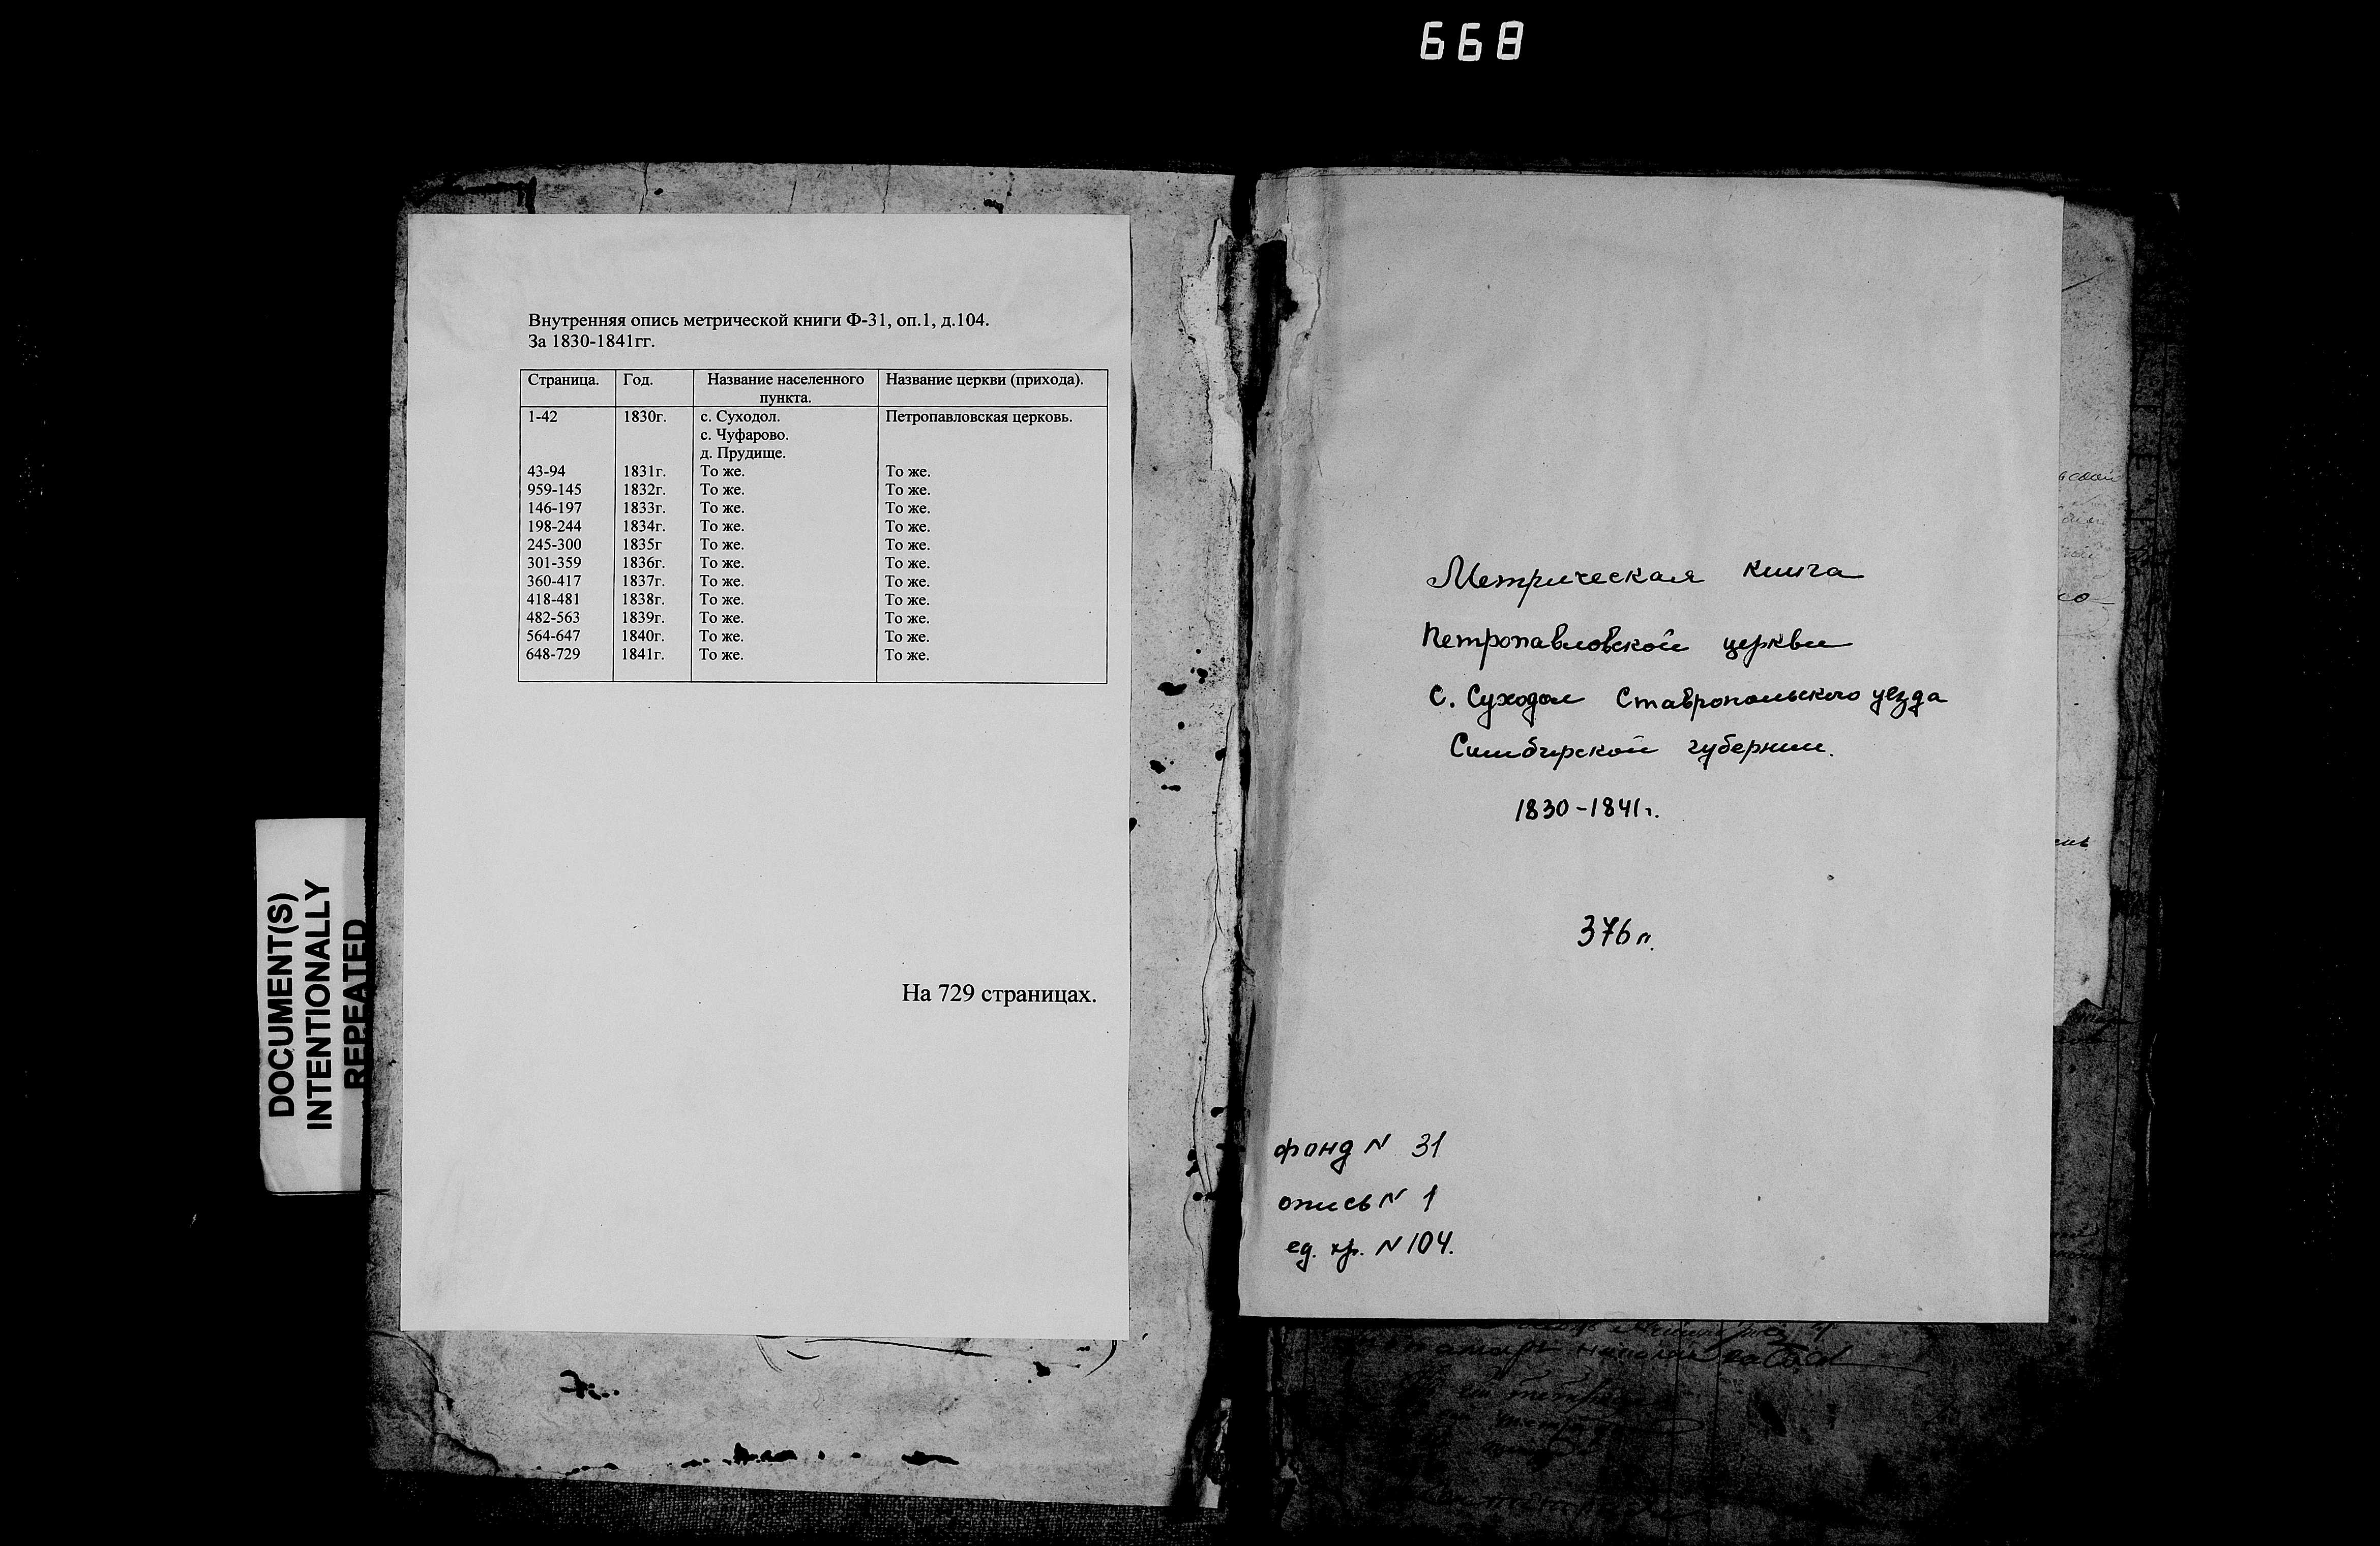 668
DOCUMENT(S)
INTENTIONALLY
REPEATED
Внутренняя опись метрической книги Ф-31, оп.1, д.104.
За 1830-1841гг.
Страница. Год. Название населенного пункта. Название церкви (прихода).
1-42 1830г. с. Суходол. Петропавловская церковь.
с. Чуфарово.
д. Прудище.
43-94 1831г. То же. То же.
959-145 1832г. То же. То же.
146-197 1833г. То же. То же.
198-244 1834г. То же. То же.
245-300 1835г То же. То же.
301-359 1836г. То же. То же.
360-417 1837г. То же. То же.
418-481 1838г. То же. То же.
482-563 1839г. То же. То же.
564-647 1840г. То же. То же.
648-729 1841г. То же. То же.
На 729 страницах.
Метрическая книга
Петропавловской церкви
с. Суходол Ставропольского уезда
Симбирской губернии.
1830-1841г.
376 л.
фонд N 31
опись N 1
ед. хр. N 104.